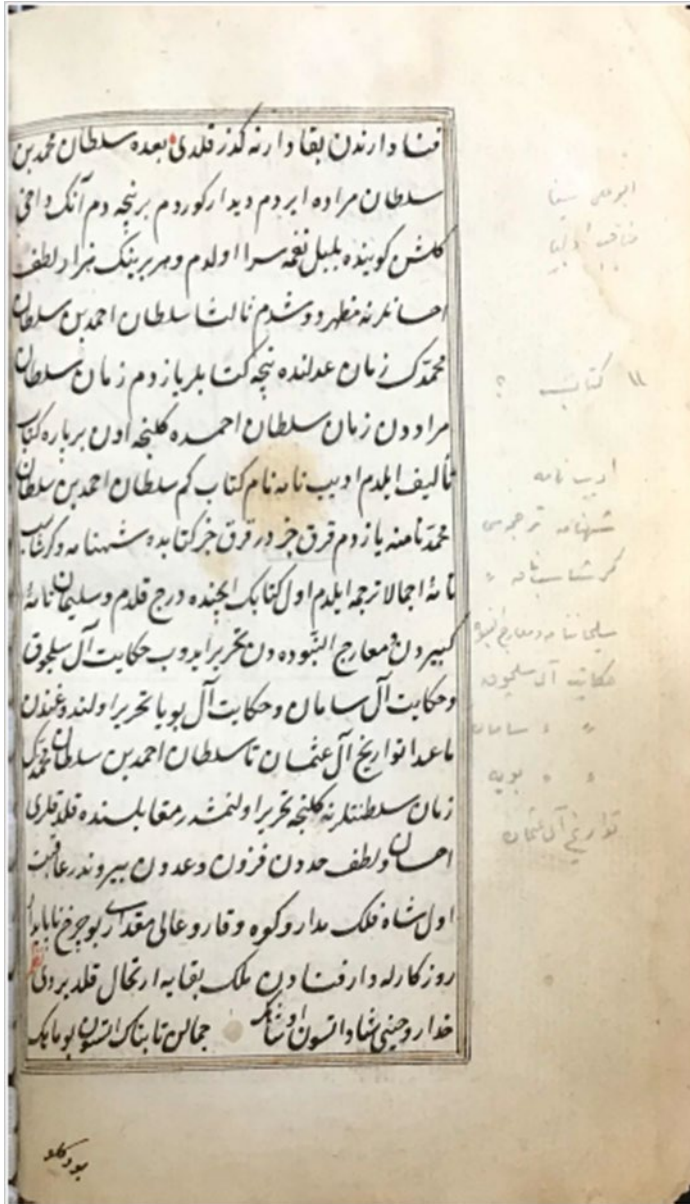 فنا دارندن بقا دارنه گذر قلدی بعده سلطان محمد بن
سلطان مراده ایردم دیدار کوردم برنیجه دم آنک داخی
کلشن کوینده بلبل نغمه سرا اولدم و هر برینک هزار لطف
احسانلرنه مظهر دوشدم ثالثا سلطان احمد بن سلطان
محمدک زمان عدلنده نیجه کتابلر یازدم زمان سلطان
مراددن زمان سلطان احمده کلنجه اون بر پاره کتاب
تألیف ایلدم ادیب نامه نام کتاب کم سلطان احمد بن سلطان
محمد نامنه یازدم قرق جزدر قرق جز کتابده شهنامه و کرشاسب
نامۀ اجمالا ترجمه ایلدم اول کتابک ایچنده درج قلدم و سلیمان نامۀ
کبیردن و معارج النبوه دن تحریر ایدوب حکایت آل سلجوق
و حکایت آل سامان و حکایت آل بویا تحریر اولندوغندن
ماعدا تواریخ آل عثمان تا سلطان احمد بن سلطان محمدک
زمان سلطنتلرنه کلنجه تحریر اولنمشدر مقابلسنده قلدقلری
احسان و لطف حددن فزون و عددن بیروندر عاقبت
اول شاه فلک مدار و کوه وقار و عالی مقدار بو چرخ ناپایدار
روزکارله دار فنادن ملک بقایه ارتحال قلدیردی نظم
خدا روحینی شاد اتسون جمالن تابناک اتسون
ابو علی سینا
مناقب اولیا
۱۱ کتاب ؟
ادیب نامه
شهنامه ترجمه سی
کرشاسبنامه 〃
سلیماننامه و معارج النبوه
حکایت آل سلجوق
〃 〃 سامان
〃 〃 بویه
تواریخ آل عثمان